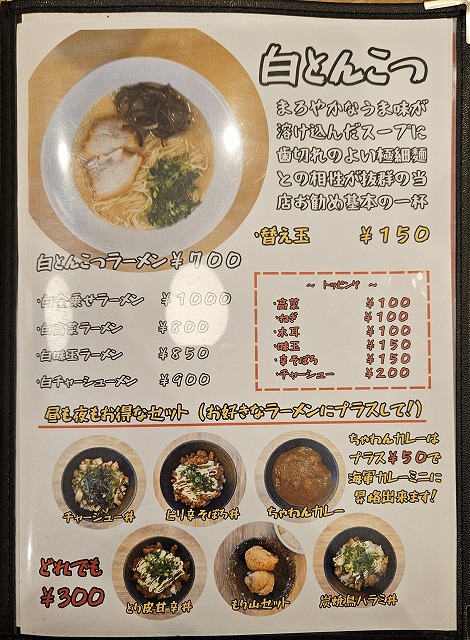 白とんこつ
まろやかなうま味が
溶け込んだスープに
歯切れのよい極細麺
との相性が抜群の当
店お勧め基本の一杯
・替え玉 ¥150
白とんこつラーメン ¥700
・白全乗せラーメン ¥1000
・白高菜ラーメン ¥800
・白味玉ラーメン ¥850
・白チャーシューメン ¥900
～ トッピング ～
・高菜 ¥100
・ねぎ ¥100
・木耳 ¥100
・味玉 ¥150
・辛そぼろ ¥150
・チャーシュー ¥200
昼も夜もお得なセット（お好きなラーメンにプラスして！）
チャーシュー丼
ピリ辛そぼろ丼
ちゃわんカレー
ちゃわんカレーは
プラス¥50で
海軍カレーミニに
昇格出来ます！
どれでも
¥300
とり皮甘辛丼
もり山セット
炭焼鳥ハラミ丼